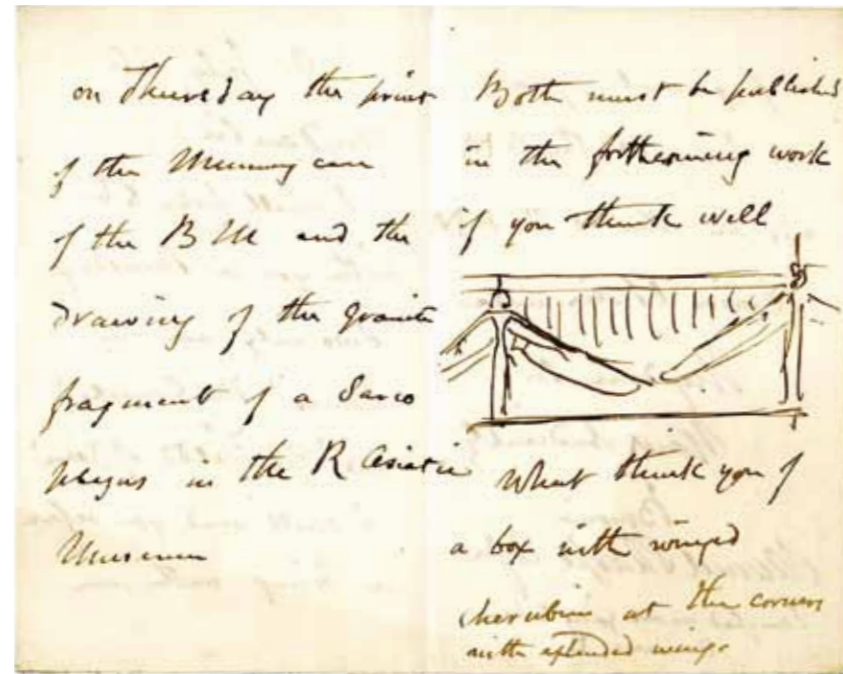 on Thursday the print
of the Mummy case
of the B M and the
drawing of the granite
fragment of a Sarco
phagus in the R Asiatic
Museum
Both must be published
in the forthcoming work
if you think well
What think you of
a box with winged
cherubim at the corners
with extended wings